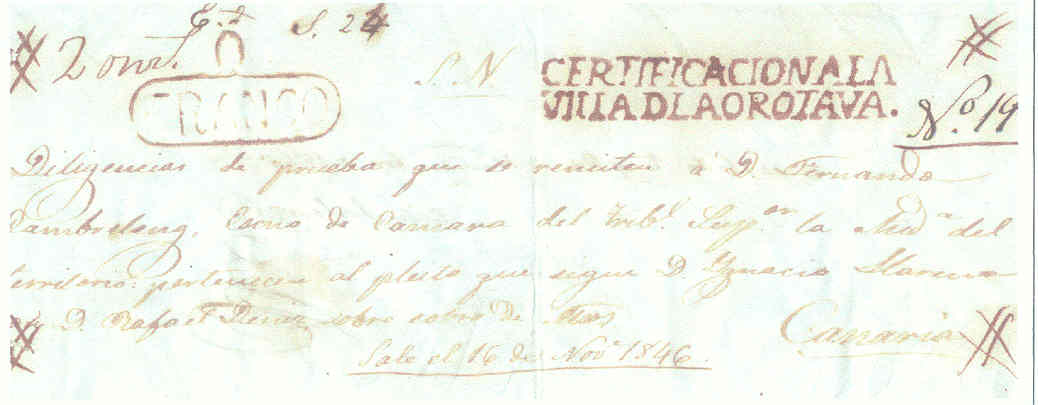 S. 24
2 onz.s
FRANCO
S. N.
CERTIFICACION A LA
VILLA D LA OROTAVA.
No. 19
Diligencias de prueba que se remiten á D. Fernando
Cambreleng, Escno de Camara del Tribl. Supor la Auda del
territorio: pertenecen al pleito que sigue D. Ygnacio Llarena
D. Rafael sobre cobro de
Canaria
Sale el 16 de Nove 1846.